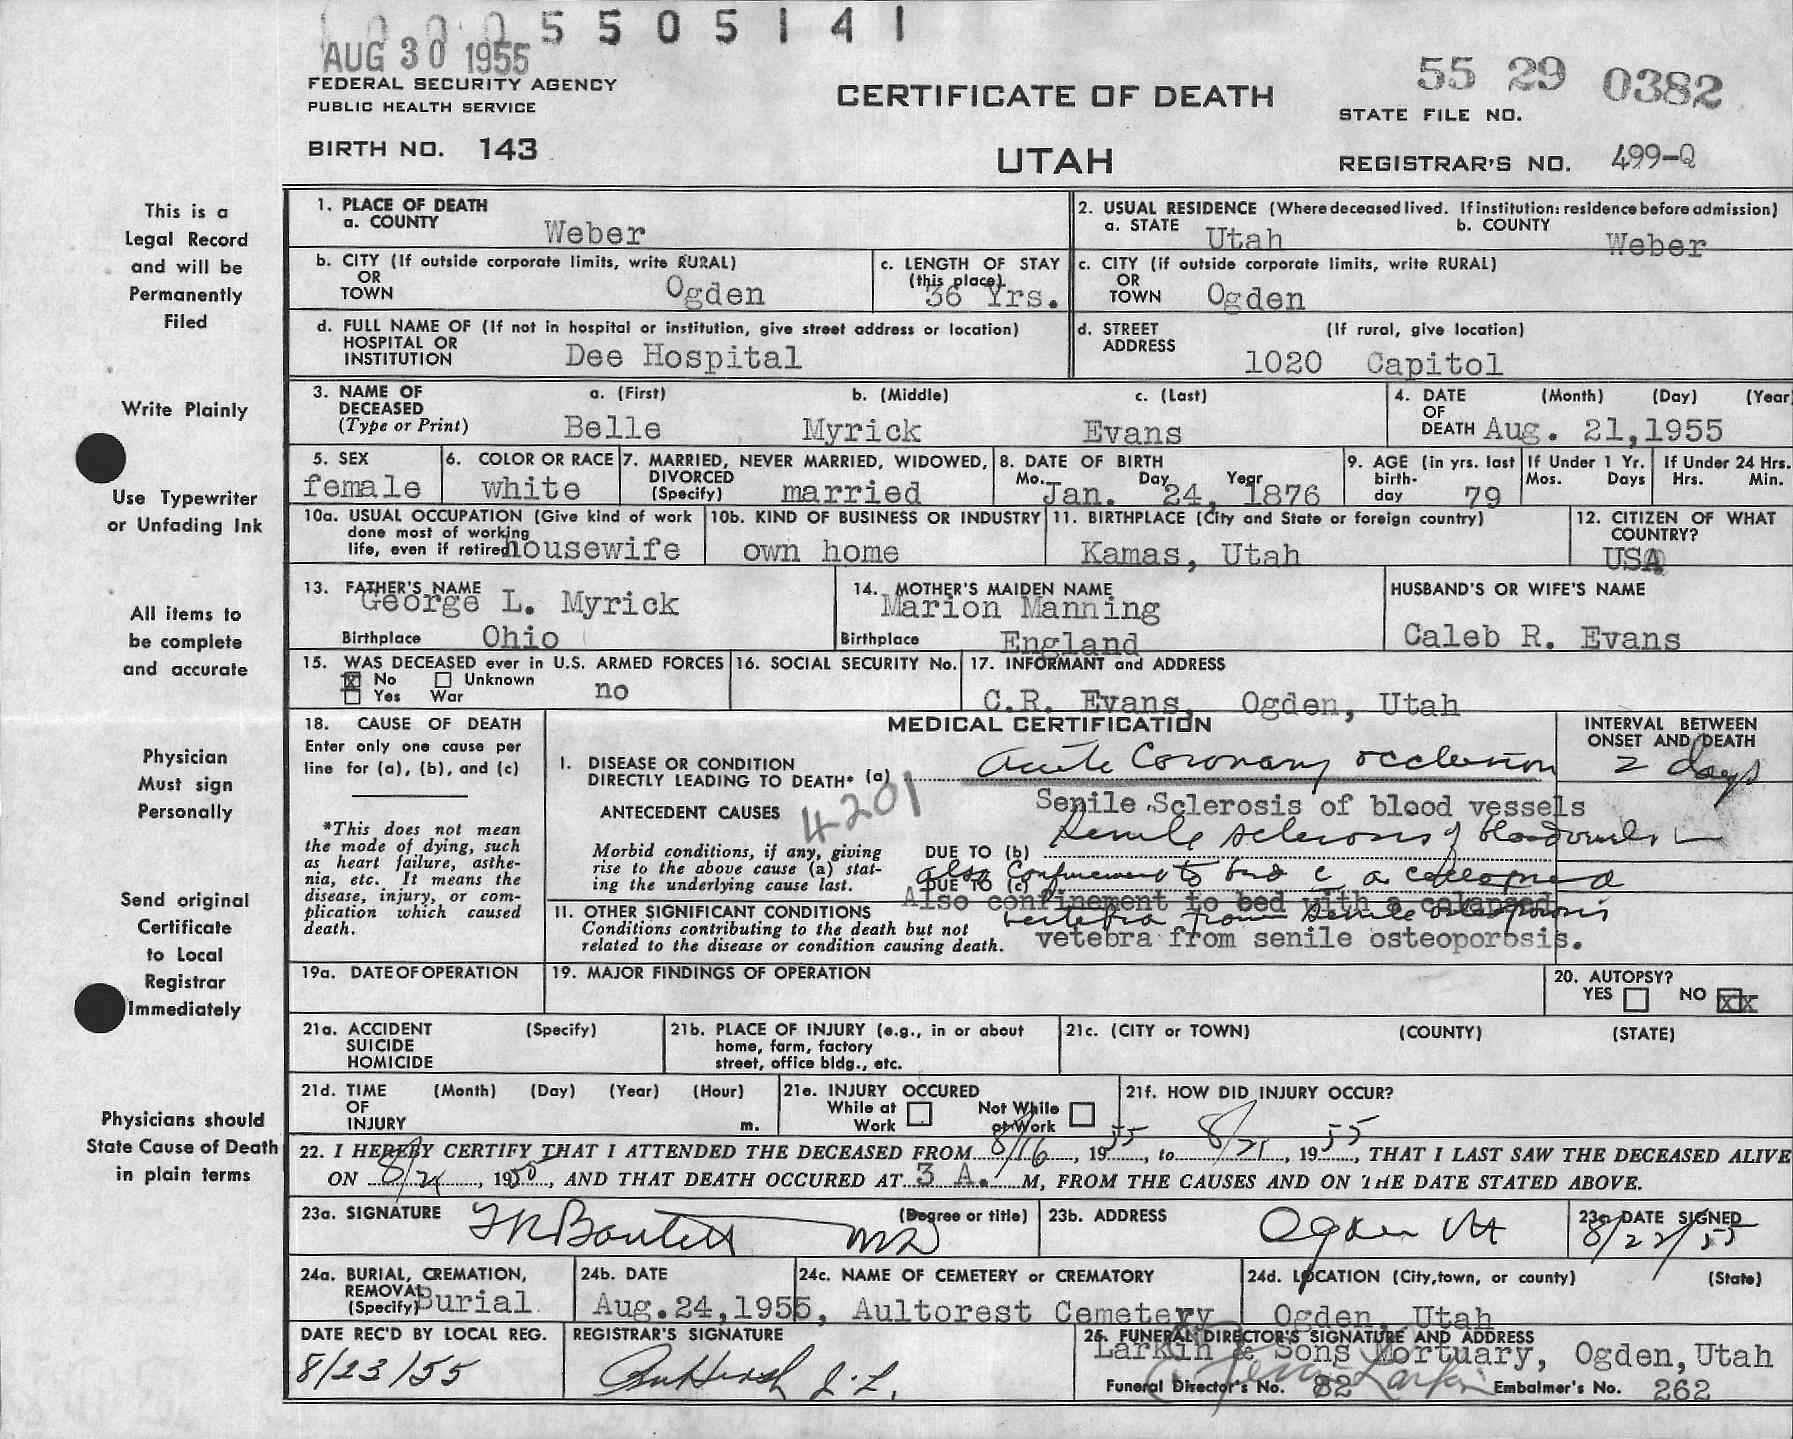 5 5 0 5 1 4 1
AUG 30 1955
FEDERAL SECURITY AGENCY
PUBLIC HEALTH SERVICE
BIRTH NO. 143
CERTIFICATE OF DEATH
UTAH
55 29 0382
STATE FILE NO.
REGISTRAR'S NO. 499-Q
This is a
Legal Record
and will be
Permanently
Filed
Write Plainly
Use Typewriter
or Unfading Ink
All items to
be complete
and accurate
Physician
Must sign
Personally
Send original
Certificate
to Local
Registrar
Immediately
Physicians should
State Cause of Death
in plain terms
1. PLACE OF DEATH
a. COUNTY Weber
2. USUAL RESIDENCE (Where deceased lived. If institution: residence before admission)
a. STATE Utah b. COUNTY Weber
b. CITY (If outside corporate limits, write RURAL)
OR
TOWN Ogden
c. LENGTH OF STAY
(this place)
36 Yrs.
c. CITY (if outside corporate limits, write RURAL)
OR
TOWN Ogden
d. FULL NAME OF (If not in hospital or institution, give street address or location)
HOSPITAL OR
INSTITUTION Dee Hospital
d. STREET (If rural, give location)
ADDRESS 1020 Capitol
3. NAME OF DECEASED
(Type or Print)
a. (First) b. (Middle) c. (Last)
Belle Myrick Evans
4. DATE (Month) (Day) (Year
OF
DEATH Aug. 21,1955
5. SEX
female
6. COLOR OR RACE
white
7. MARRIED, NEVER MARRIED, WIDOWED,
DIVORCED
(Specify) married
8. DATE OF BIRTH
Mo. Day Year
Jan. 24, 1876
9. AGE (in yrs. last
birth-
day 79
If Under 1 Yr.
Mos. Days
If Under 24 Hrs.
Hrs. Min.
10a. USUAL OCCUPATION (Give kind of work
done most of working
life, even if retired housewife
10b. KIND OF BUSINESS OR INDUSTRY
own home
11. BIRTHPLACE (City and State or foreign country)
Kamas, Utah
12. CITIZEN OF WHAT
COUNTRY?
USA
13. FATHER'S NAME
George L. Myrick
Birthplace Ohio
14. MOTHER'S MAIDEN NAME
Marion Manning
Birthplace England
HUSBAND'S OR WIFE'S NAME
Caleb R. Evans
15. WAS DECEASED ever in U.S. ARMED FORCES
No Unknown
Yes War no
16. SOCIAL SECURITY No.
17. INFORMANT and ADDRESS
C.R. Evans, Ogden, Utah
18. CAUSE OF DEATH
Enter only one cause per
line for (a), (b), and (c)
*This does not mean
the mode of dying, such
as heart failure, asthe-
nia, etc. It means the
disease, injury, or com-
plication which caused
death.
MEDICAL CERTIFICATION
INTERVAL BETWEEN
ONSET AND DEATH
I. DISEASE OR CONDITION
DIRECTLY LEADING TO DEATH* (a) acute Coronary occlusion 2 days
ANTECEDENT CAUSES 4201
Senile Sclerosis of blood vessels
Morbid conditions, if any, giving
rise to the above cause (a) stat-
ing the underlying cause last.
DUE TO (b) Senile sclerosis of blood vessels
DUE TO (c) also Confinement to bed c a collapsed
Also confinement to bed with a colapsed
II. OTHER SIGNIFICANT CONDITIONS
Conditions contributing to the death but not
related to the disease or condition causing death.
vertebra from senile osteoporosis
vetebra from senile osteoporosis.
19a. DATE OF OPERATION
19. MAJOR FINDINGS OF OPERATION
20. AUTOPSY?
YES NO XX
21a. ACCIDENT (Specify)
SUICIDE
HOMICIDE
21b. PLACE OF INJURY (e.g., in or about
home, farm, factory
street, office bldg., etc.
21c. (CITY or TOWN) (COUNTY) (STATE)
21d. TIME (Month) (Day) (Year) (Hour)
OF
INJURY m.
21e. INJURY OCCURED
While at Work Not While at Work
21f. HOW DID INJURY OCCUR?
22. I HEREBY CERTIFY THAT I ATTENDED THE DECEASED FROM 8/16, 1955, to 8/21, 1955, THAT I LAST SAW THE DECEASED ALIVE
ON 8/21, 1955, AND THAT DEATH OCCURED AT 3 A. M, FROM THE CAUSES AND ON THE DATE STATED ABOVE.
23a. SIGNATURE (Degree or title) MD
23b. ADDRESS Ogden Ut
23c. DATE SIGNED
8/22/55
24a. BURIAL, CREMATION,
REMOVAL
(Specify) Burial
24b. DATE
Aug.24,1955,
24c. NAME OF CEMETERY or CREMATORY
Aultorest Cemetery
24d. LOCATION (City,town, or county) (State)
Ogden, Utah
DATE REC'D BY LOCAL REG.
8/23/55
REGISTRAR'S SIGNATURE
25. FUNERAL DIRECTOR'S SIGNATURE AND ADDRESS
Larkin & Sons Mortuary, Ogden,Utah
Funeral Director's No. 82 Embalmer's No. 262